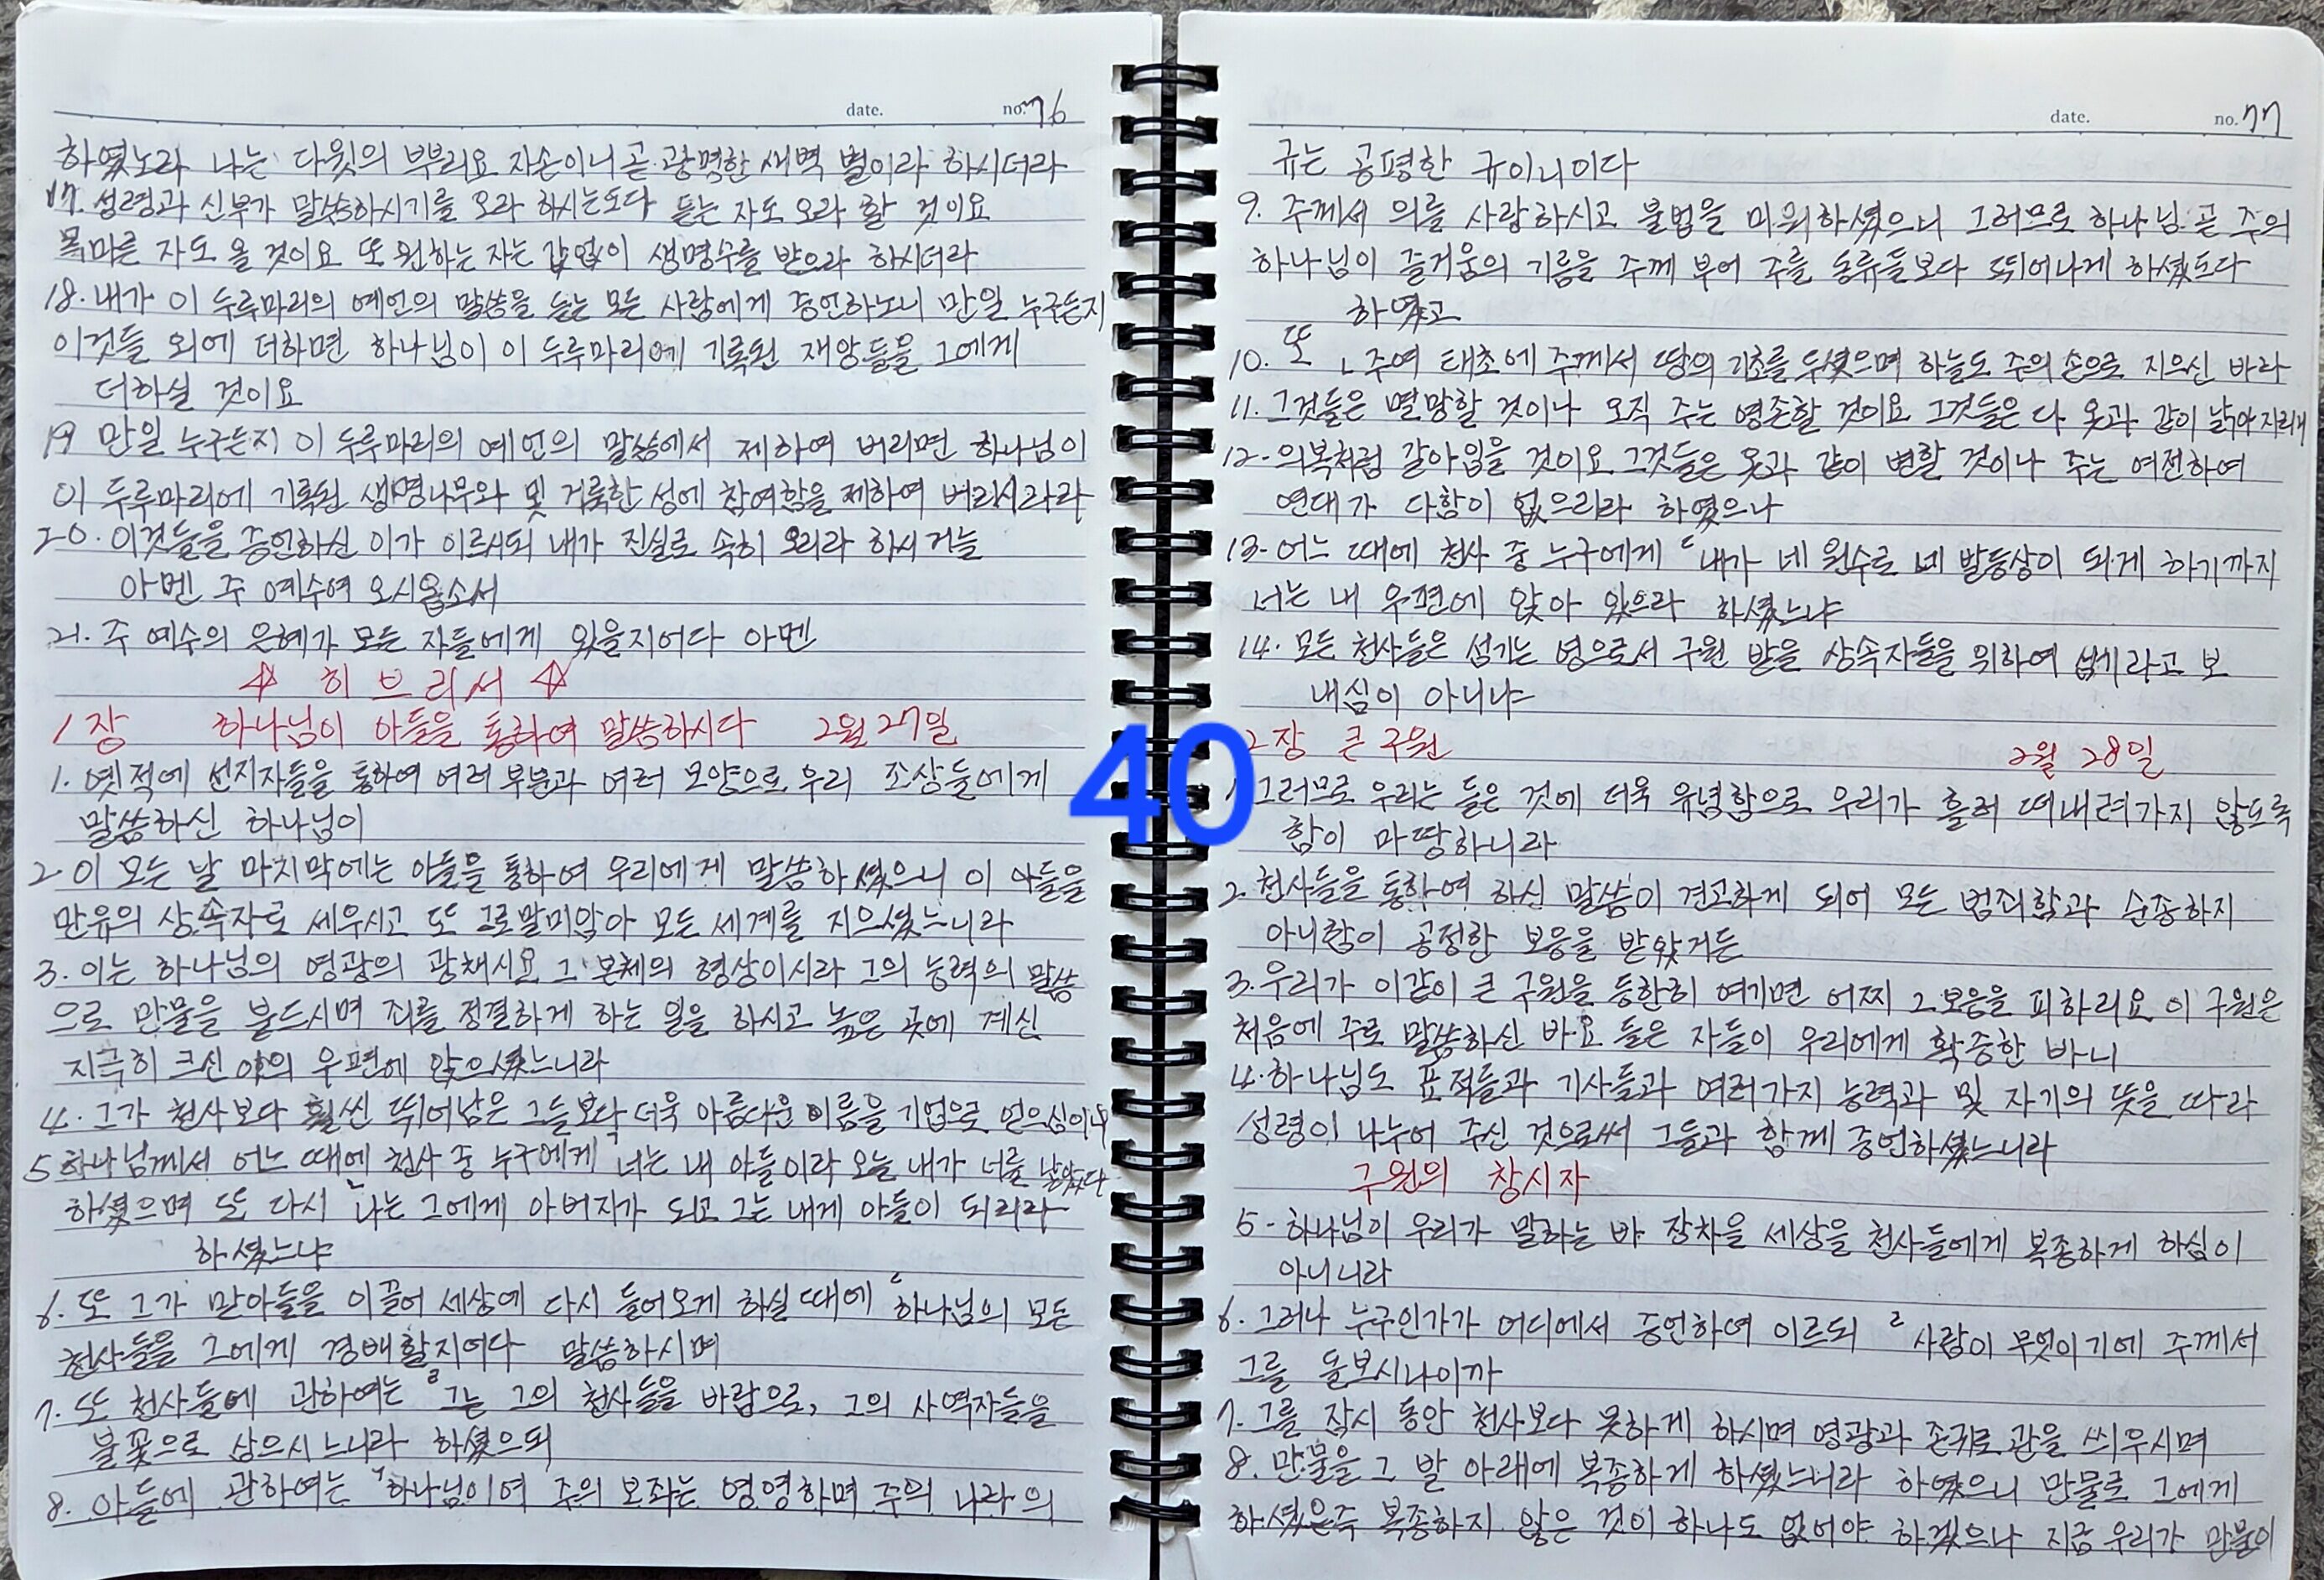 date. no. 76
하였노라 나는 다윗의 뿌리요 자손이니 곧 광명한 새벽 별이라 하시더라
17. 성령과 신부가 말씀하시기를 오라 하시는도다 듣는 자도 오라 할 것이요
목마른 자도 올 것이요 또 원하는 자는 값없이 생명수를 받으라 하시더라
18. 내가 이 두루마리의 예언의 말씀을 듣는 모든 사람에게 증언하노니 만일 누구든지
이것들 외에 더하면 하나님이 이 두루마리에 기록된 재앙들을 그에게
더하실 것이요
19 만일 누구든지 이 두루마리의 예언의 말씀에서 제하여 버리면 하나님이
이 두루마리에 기록된 생명나무와 및 거룩한 성에 참여함을 제하여 버리시리라
20. 이것들을 증언하신 이가 이르시되 내가 진실로 속히 오리라 하시거늘
아멘 주 예수여 오시옵소서
21. 주 예수의 은혜가 모든 자들에게 있을지어다 아멘
☆ 히브리서 ☆
1장 하나님이 아들을 통하여 말씀하시다 2월 27일
1. 옛적에 선지자들을 통하여 여러 부분과 여러 모양으로 우리 조상들에게
말씀하신 하나님이
2 이 모든 날 마지막에는 아들을 통하여 우리에게 말씀하셨으니 이 아들을
만유의 상속자로 세우시고 또 그로말미암아 모든 세계를 지으셨느니라
3. 이는 하나님의 영광의 광채시요 그 본체의 형상이시라 그의 능력의 말씀
으로 만물을 붙드시며 죄를 정결하게 하는 일을 하시고 높은 곳에 계신
지극히 크신 이의 우편에 앉으셨느니라
4. 그가 천사보다 훨씬 뛰어남은 그들보다 더욱 아름다운 이름을 기업으로 얻으심이니
5 하나님께서 어느 때에 천사 중 누구에게 너는 내 아들이라 오늘 내가 너를 낳았다
하셨으며 또 다시 나는 그에게 아버지가 되고 그는 내게 아들이 되리라
하셨느냐
6. 또 그가 맏아들을 이끌어 세상에 다시 들어오게 하실 때에 하나님의 모든
천사들을 그에게 경배할지어다 말씀하시며
7. 또 천사들에 관하여는 그는 그의 천사들을 바람으로, 그의 사역자들을
불꽃으로 삼으시느니라 하셨으되
8. 아들에 관하여는 하나님이여 주의 보좌는 영영하며 주의 나라의
40
date. no. 77
규는 공평한 규이니이다
9. 주께서 의를 사랑하시고 불법을 미워하셨으니 그러므로 하나님 곧 주의
하나님이 즐거움의 기름을 주께 부어 주를 동류들보다 뛰어나게 하셨도다
하였고
10. 또 주여 태초에 주께서 땅의 기초를 두셨으며 하늘도 주의 손으로 지으신 바라
11. 그것들은 멸망할 것이나 오직 주는 영존할 것이요 그것들은 다 옷과 같이 낡아지리니
12. 의복처럼 갈아입을 것이요 그것들은 옷과 같이 변할 것이나 주는 여전하여
연대가 다함이 없으리라 하였으나
13. 어느 때에 천사 중 누구에게 내가 네 원수로 네 발등상이 되게 하기까지
너는 내 우편에 앉아 있으라 하셨느냐
14. 모든 천사들은 섬기는 영으로서 구원 받을 상속자들을 위하여 섬기라고 보
내심이 아니냐
2장 큰 구원 2월 28일
1 그러므로 우리는 들은 것에 더욱 유념함으로 우리가 흘러 떠내려가지 않도록
함이 마땅하니라
2. 천사들을 통하여 하신 말씀이 견고하게 되어 모든 범죄함과 순종하지
아니함이 공정한 보응을 받았거든
3. 우리가 이같이 큰 구원을 등한히 여기면 어찌 그 보응을 피하리요 이 구원은
처음에 주로 말씀하신 바요 들은 자들이 우리에게 확증한 바니
4. 하나님도 표적들과 기사들과 여러가지 능력과 및 자기의 뜻을 따라
성령이 나누어 주신 것으로써 그들과 함께 증언하셨느니라
구원의 창시자
5. 하나님이 우리가 말하는 바 장차올 세상을 천사들에게 복종하게 하심이
아니니라
6. 그러나 누구인가가 어디에서 증언하여 이르되 사람이 무엇이기에 주께서
그를 돌보시나이까
7. 그를 잠시 동안 천사보다 못하게 하시며 영광과 존귀로 관을 씌우시며
8. 만물을 그 발 아래에 복종하게 하셨느니라 하였으니 만물로 그에게
하셨은즉 복종하지 않은 것이 하나도 없어야 하겠으나 지금 우리가 만물이